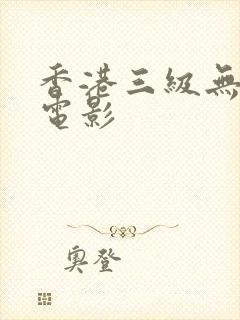 香港三級無
電影
奧登